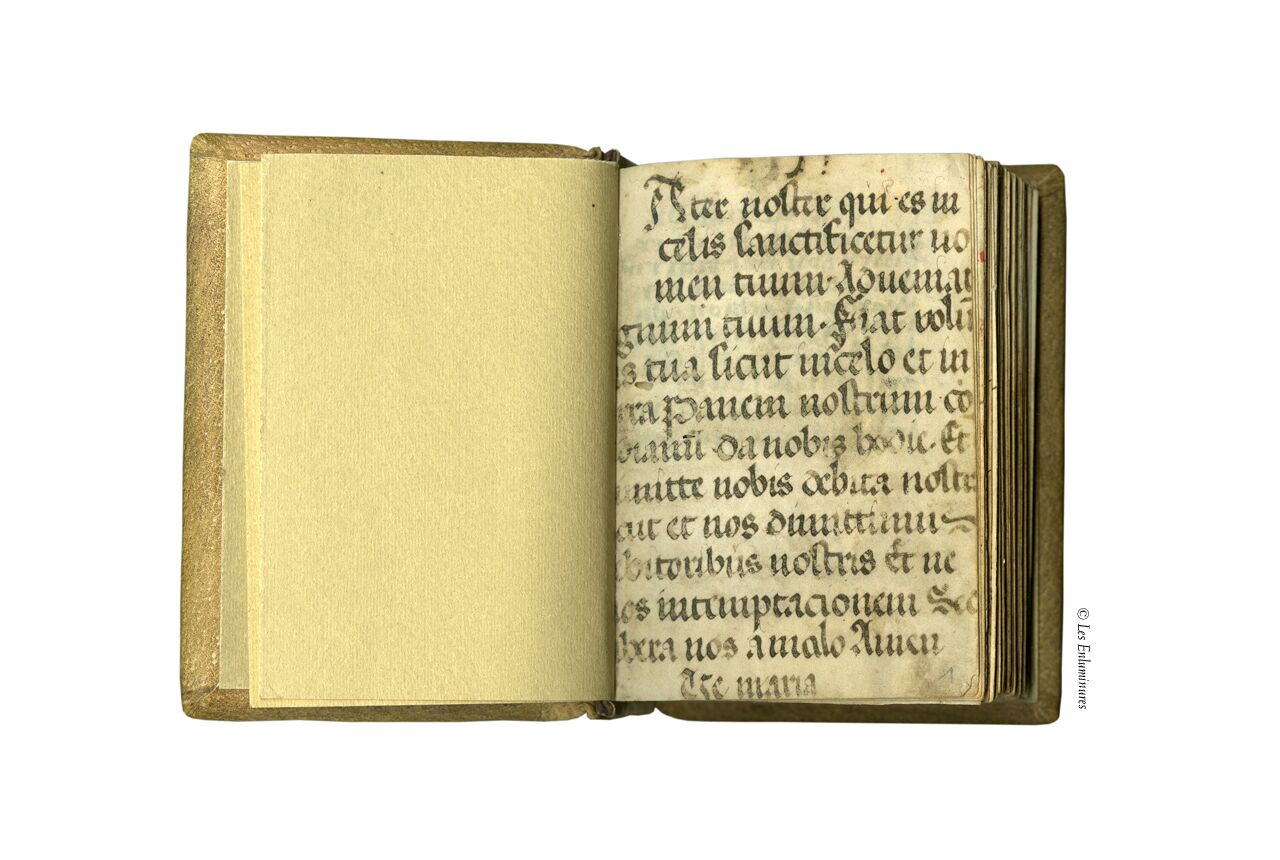 Ater noster qui es in
celis sanctificetur no
men tuum. Adveniat
gnum tuum. Fiat volū
s tua sicut in celo et in
rra Panem nostrum co
dianū da nobis hodie. Et
mitte nobis debita nostr
cut et nos dimittimus
bitoribus nostris Et ne
nos in temptacionem Sed
libera nos a malo Amen
Ave maria
© Les Enluminures